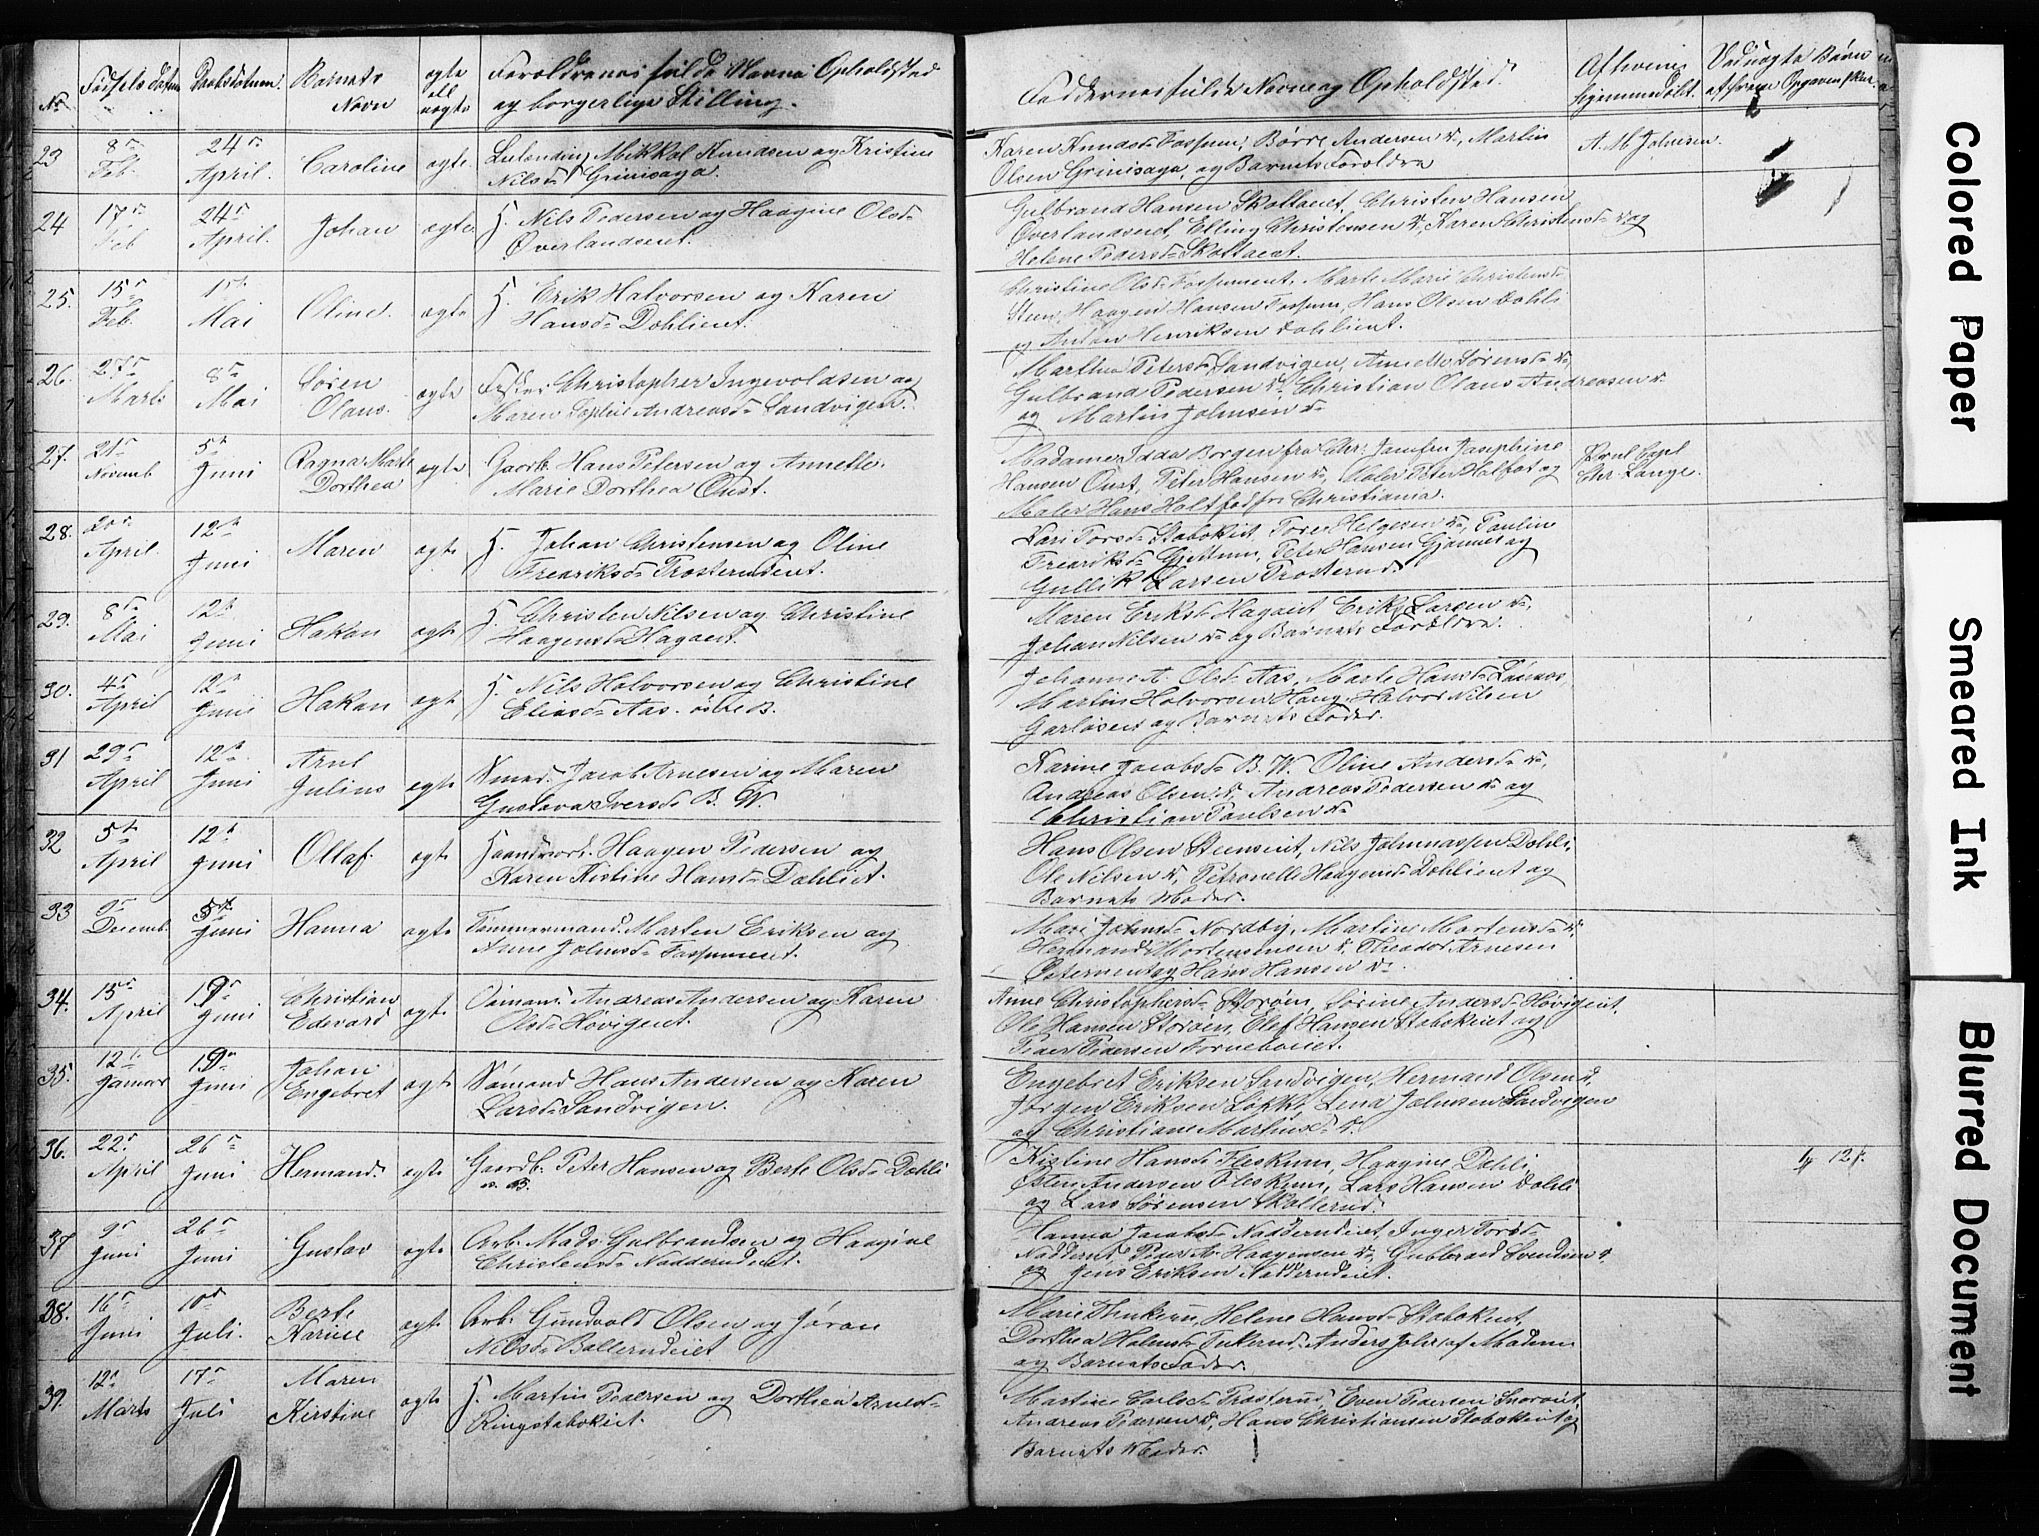 No
Fødsels datum
Daabsdatum.
Barnets
Navn
ægte
ell
uægte
Foreldrenes fulde Navne Opholdsted
og borgerlige Stilling.
Faddernes fulde Navne og Opholdsted.
Af hvem
hjemmedøbt.
Ved uægte Børn
af hvem Opgaven sker.
23
8de
Feb.
24de
April.
Caroline
ægte
Leilending Mikkel Knudsen og Kristine
Nilsd. Grinisaga.
Karen Knudsd. Fossum, Børre Andersen do, Martin
Olsen Grinisaga og Barnets Foreldre
A. M. Johnsen.
24
17de
Feb
24de
April.
Johan
ægte
H. Nils Pedersen og Haagine Olsd.
Øverlandseiet.
Gulbrand Hansen Skottaeiet, Christen Hansen
Øverlandseiet, Elling Christensen do, Karen Christensd. do og
Helene Pedersd. Skottaeiet.
25.
15de
Feb.
1ste
Mai
Oline.
ægte
H. Erik Halvorsen og Karen
Hansd. Dahlieiet.
Christine Olsd. Fossumeiet, Marte Marie Christensd.
Steen, Haagen Hansen Fossum, Hans Olsen Dahli
og Anton Henriksen Dahlieiet.
26.
27de
Marts
8de
Mai
Søren
Olaus.
ægte
Fisker Christopher Ingevoldsen og
Maren Sophie Andreasd. Sandvigen.
Marthea Petersd. Sandvigen, Annette Sørensd. do,
Gulbrand Pedersen do, Christian Olaus Andreasen do
og Martin Johnsen do
27.
21de
Novemb
5te
Juni
Ragna Marte
Dorthea
ægte
Gaardb. Hans Petersen og Annette
Marie Dorthea Qust.
Madame Idda Borgen fra Chr: Jomfru Josephine
Hansen Qust, Peter Hansen do, Maler Peter Holfat og
Maler Hans Holtfod fra Christiania.
Pers. Capl
Chr. Lange.
28.
20de
April.
12te
Juni
Maren
ægte
H. Johan Christensen og Oline
Fredriksd. Trosterudeiet.
Kari Torsd. Stabækeiet, Torer Helgesen do, Pauline
Fredriksd. Gjettum, Peter Hansen Gjønnes og
Gullik Larsen Trosterud.
29.
8de
Mai
12te
Juni
Hakan
ægte
H. Christen Nilsen og Christine
Haagensd. Hagaeiet.
Maren Eriksd. Hagaeiet, Erik Larsen do,
Johan Nilsen do og Barnets Foreldre.
30.
4de
April
12te
Juni
Hakan
ægte
H. Nils Halvorsen og Christine
Eliasd. Aas. østre B.
Johanne A. Olsd. Aas, Marte Hansd.
Martin Halvorsen Haug, Halvor Nilsen
Garløseiet og Barnets Fader.
31
29de
April
12te
Juni
Arne
Julius
ægte
Smed. Jacob Arnesen og Maren
Gustava Iversd. B. W.
Karine Jacobsd. B. W. Oline Andersd. do,
Andreas Olsen do, Andreas Pedersen do og
Christian Paulsen do
32
5te
April
12te
Juni
Ollaf.
ægte
Haandværk. Haagen Pedersen og
Karen Kistine Hansd. Dahliet.
Hans Olsen Steenseiet, Nils Johnnassen Dahli,
Ole Nilsen do, Petronelle Haagensd. Dahlieiet og
Barnets Moder.
33
9de
Decemb.
5te
Juni
Hanna
ægte
Tømmermand. Marten Eriksen og
Anne Johnsd. Fossumeiet.
Mari Johnsd. Nordby, Martine Martensd. do,
Hermand Mortensensen do, Theodor Arnesen
Østerneiet og Hans Hansen do.
34.
15de
April
19de
Juni
Christian
Edevard
ægte
Sømand. Andreas Andersen og Karen
Olsd. Høvigeiet.
Anne Christophersd. Storøen, Sørine Andersd. Høvigeiet,
Ole Hansen Storøen, Elef Hansen Stabækeiet og
Peder Pedersen Forneboeiet.
35.
12te
Januar
19de
Juni
Johan
Engebret
ægte
Sømand Hans Andersen og Karen
Larsd. Sandvigen.
Engebret Eriksen Sandvigen, Hermand Olsen do,
Jørgen Eriksen Løkke, Lena Johnsen Sandvigen
og Christiane Martinsd. do.
36.
22de
April
26de
Juni
Hermand.
ægte
Gaardb. Peter Hansen og Berte Olsd. Dæhli
v. B.
Kistine Hansd. Fleskum, Haagine Dæhli,
Østen Andersen Fleskum, Lars Hansen Dahli
og Lars Sørensen Skollerud.
12 s.
37
9de
Juni
26de
Juni
Gustav
ægte
Arb. Mads Gulbrandsen og Haagine
Christensd. Nadderudeiet.
Hanna Jacobsd. Nadderudeiet, Inger Torsd.
Nadderud, Peder A. Haagensen do, Gulbrand Svendsen do,
og Jens Eriksen Nadderudeiet.
38.
16de
Juni
10de
Juli.
Berte
Karine
ægte
Arb. Gundvald Olsen og Jøran
Nilsd. Ballerudeiet
Marie Tinkerud, Helene Hansd. Stabækeiet,
Dorthea Halensd. Tinkerud, Anders Johs af Modum
og Barnets Fader.
39.
12te
Marts
17de
Juli
Maren
Kirstine
ægte
H. Martin Pedersen og Dorthea Arnesd.
Ringstabækeiet.
Martine Carlsd. Trosterud, Even Pedersen Snoroeiet,
Andreas Pedersen do, Hans Christiansen Stabækeiet og
Barnets Moder.
Colored Paper
Smeared Ink
Blurred Document